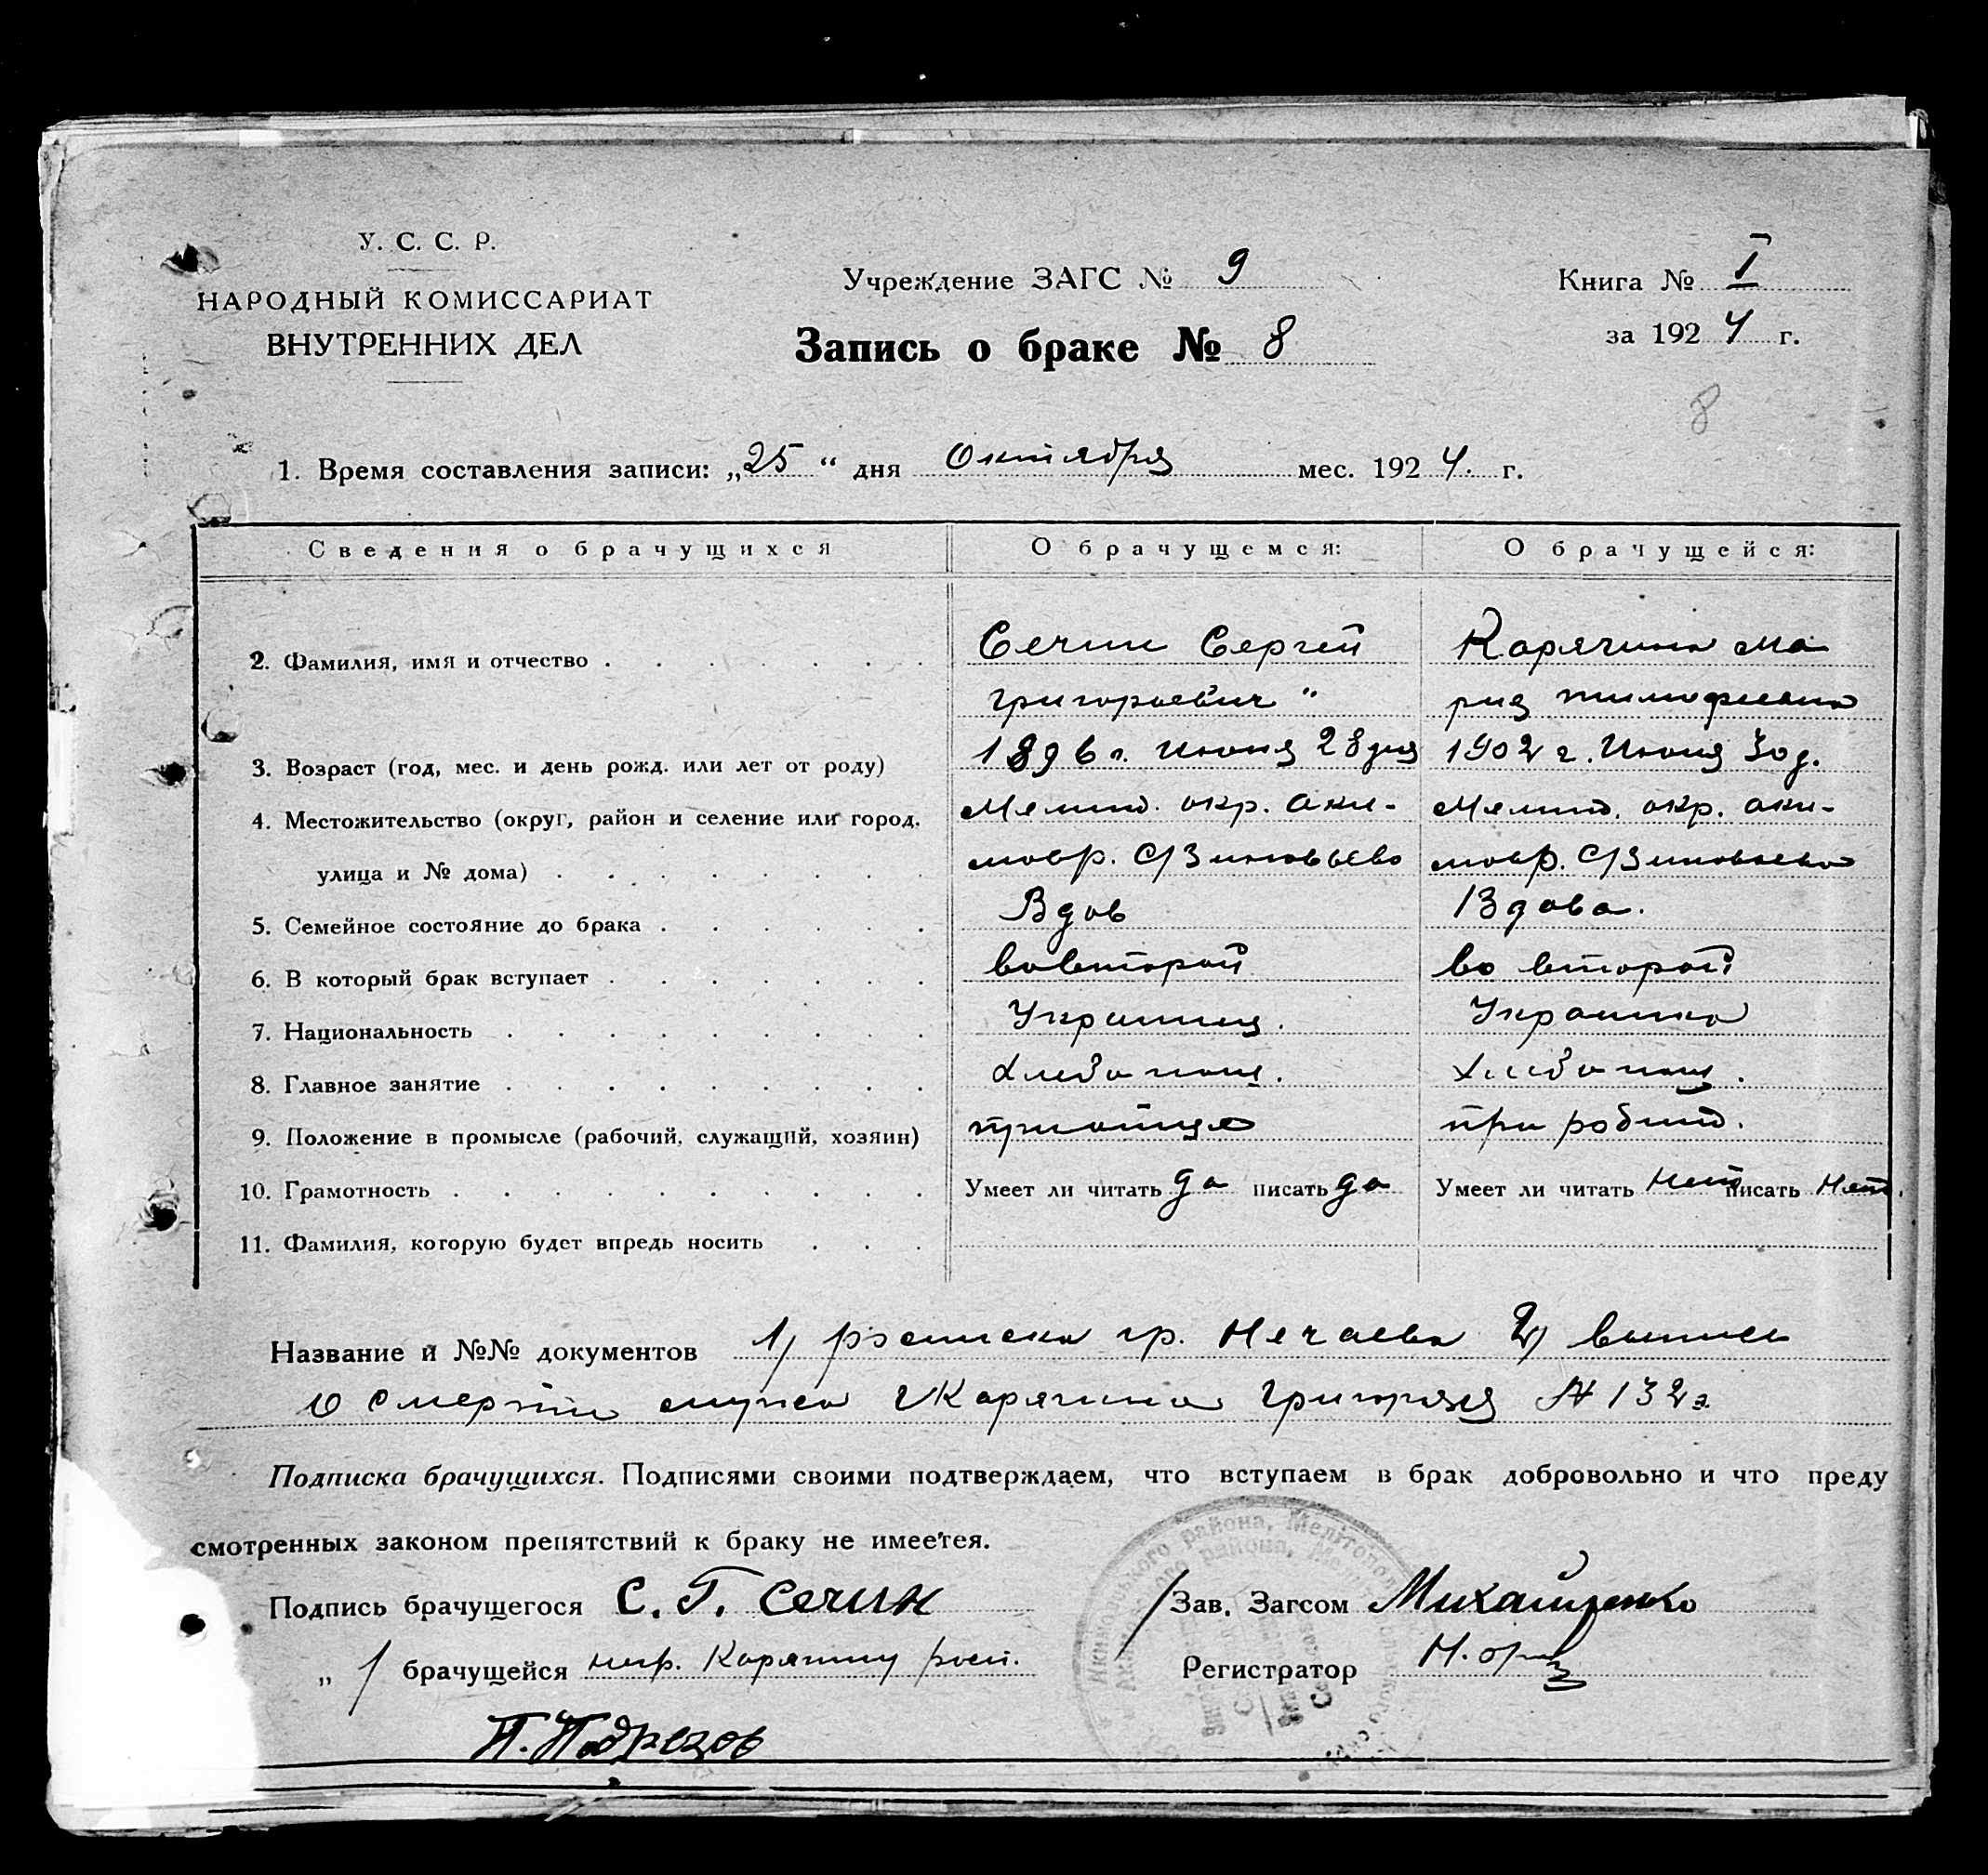 У. С. С. Р.
НАРОДНЫЙ КОМИССАРИАТ
ВНУТРЕННИХ ДЕЛ
Учреждение ЗАГС № 9
Книга № I
за 1924 г.
Запись о браке № 8
8
1. Время составления записи: „25“ дня Октября мес. 1924. г.
Сведения о брачущихся О брачущемся: О брачущейся:
2. Фамилия, имя и отчество Сечин Сергей Карячина Ма
григорьевич рия тимофиевна
3. Возраст (год, мес. и день рожд. или лет от роду) 1896 г. Июня 28 дня 1902 г. Июня 30 д.
4. Местожительство (округ, район и селение или город, Мелит. окр. Аки- Мелит. окр. аки-
улица и № дома) мовр. С/Зиновьево мовр. С/Зиновьево
5. Семейное состояние до брака Вдов Вдова.
6. В который брак вступает вовторой во второй
7. Национальность Украинец. Украинка
8. Главное занятие Хлебопаш. Хлебопаш.
9. Положение в промысле (рабочий, служащий, хозяин) при отце при
10. Грамотность Умеет ли читать да писать да Умеет ли читать Нет писать Нет.
11. Фамилия, которую будет впредь носить
Название и №№ документов 1) росписка гр. Нечаева 2) выпись
о смерти мужа Карячина Григория № 132
Подписка брачущихся. Подписями своими подтверждаем, что вступаем в брак добровольно и что преду
смотренных законом препятствий к браку не имеется.
Подпись брачущегося С. Г. Сечин
/Зав. Загсом Михайленко
„ / брачущейся негр. Карячину росп.
Регистратор
П. Подрезов
Акимовского района, Мелитопольского